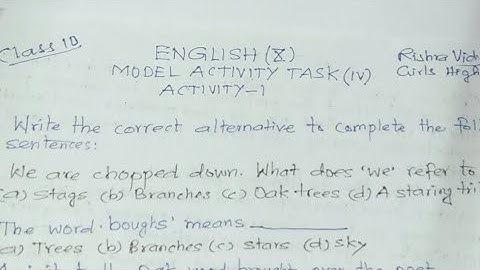 Class 10
ENGLISH (X)
MODEL ACTIVITY TASK (IV)
ACTIVITY-1
Rishra
Girls High
Write the correct alternative to complete the
sentences:
We are chopped down. What does 'we' refer to
(a) Stags (b) Branches (c) Oak trees (d) A staring
The word 'boughs' means ________
(a) Trees (b) Branches (c) stars (d) sky